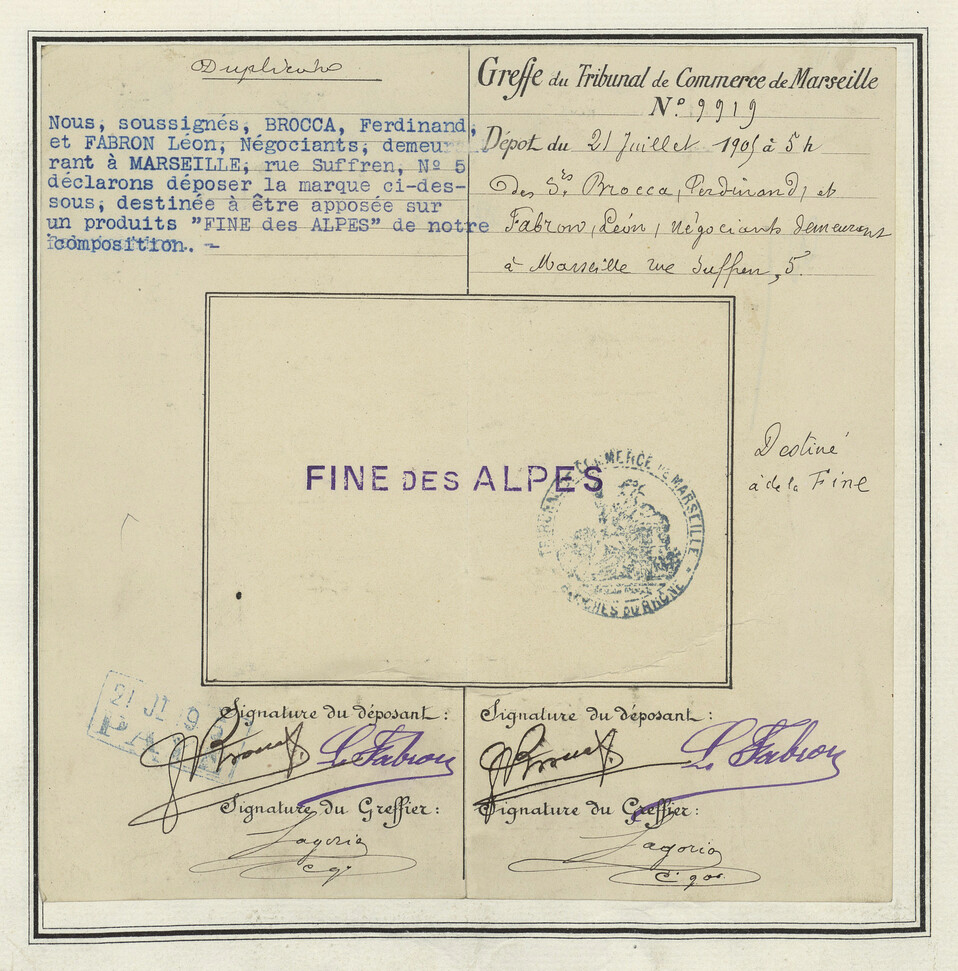 Duplicata
Nous, soussignés, BROCCA, Ferdinand,
et FABRON Léon, Négociants, demeur
rant à MARSEILLE, rue Suffren, Nº 5
déclarons déposer la marque ci-des-
sous, destinée à être apposée sur
un produits "FINE des ALPES" de notre
composition. -
Greffe du Tribunal de Commerce de Marseille
Nº 9919
Dépot du 21 Juillet 1905 à 5 h
des Srs Brocca, Ferdinand, et
Fabron, Léon, négociants demeurant
à Marseille rue Suffren, 5.
FINE DES ALPES
TRIBUNAL DE COMMERCE DE MARSEILLE
BOUCHES DU RHÔNE
Destiné
à de la Fine
21 JT
Signature du déposant :
Brocca L. Fabron
Signature du Greffier :
Lagorio
Signature du déposant :
Brocca L. Fabron
Signature du Greffier :
Lagorio